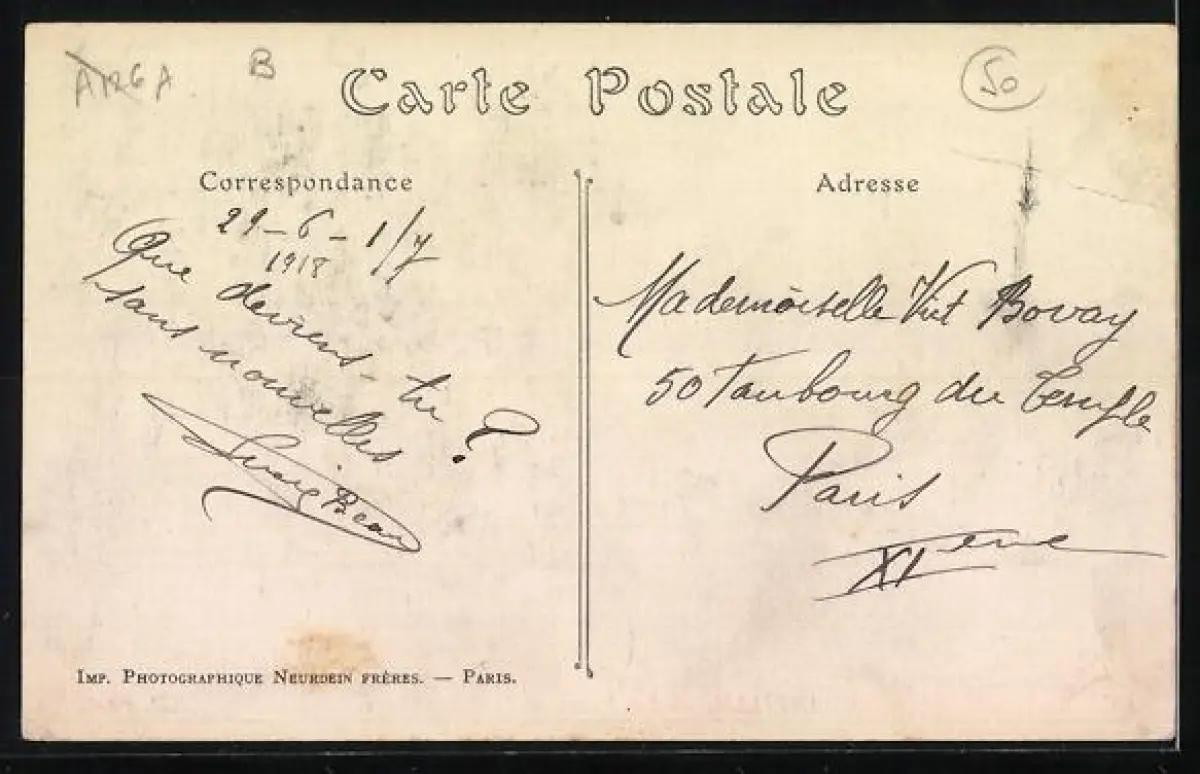 ARGA B
50
Carte Postale
Correspondance
Adresse
29-6-1/7
1918
Que deviens-tu ?
sans nouvelles
Bean
Mademoiselle Bovay
50 Faubourg du Temple
Paris
XIeme
IMP. PHOTOGRAPHIQUE NEURDEIN FRÈRES. — PARIS.